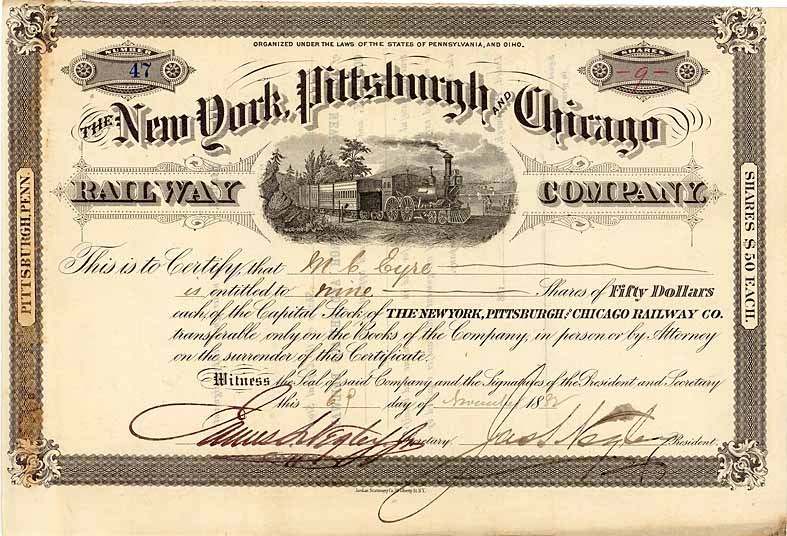 ORGANIZED UNDER THE LAWS OF THE STATES OF PENNSYLVANIA, AND OIHO.
NUMBER
47
SHARES
9
THE New York, Pittsburgh, AND Chicago
RAILWAY COMPANY.
PITTSBURGH, PENN.
SHARES $50 EACH.
This is to Certify, that M C Eyre
is entitled to nine Shares of Fifty Dollars
each, of the Capital Stock of THE NEW YORK, PITTSBURGH AND CHICAGO RAILWAY CO.
transferable only on the Books of the Company, in person or by Attorney
on the surrender of this Certificate.
Witness the Seal of said Company and the Signatures of the President and Secretary
this 6th day of November 1882
James S Negley Jr Secretary. Jas S Negley President.